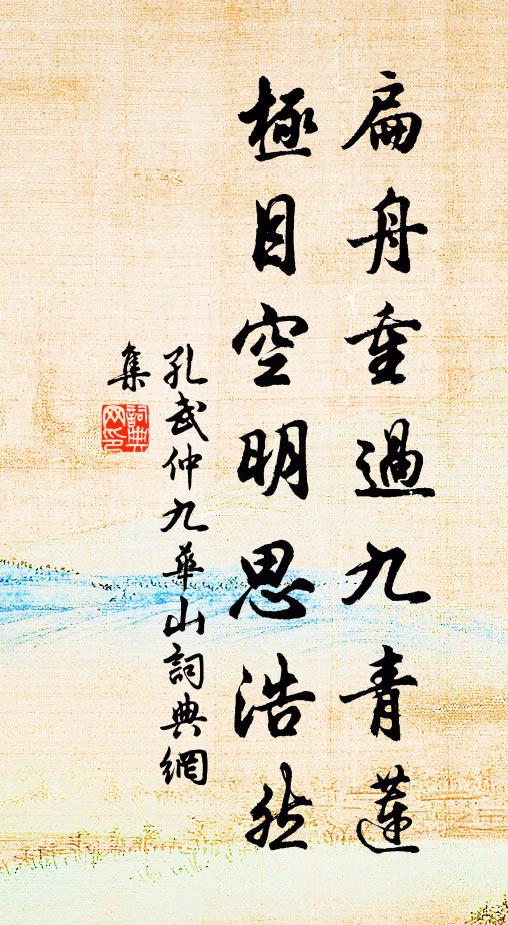 扁舟重過九青蓮
極目空明思浩然
孔武仲九華山詞典網
集
詞典
网印